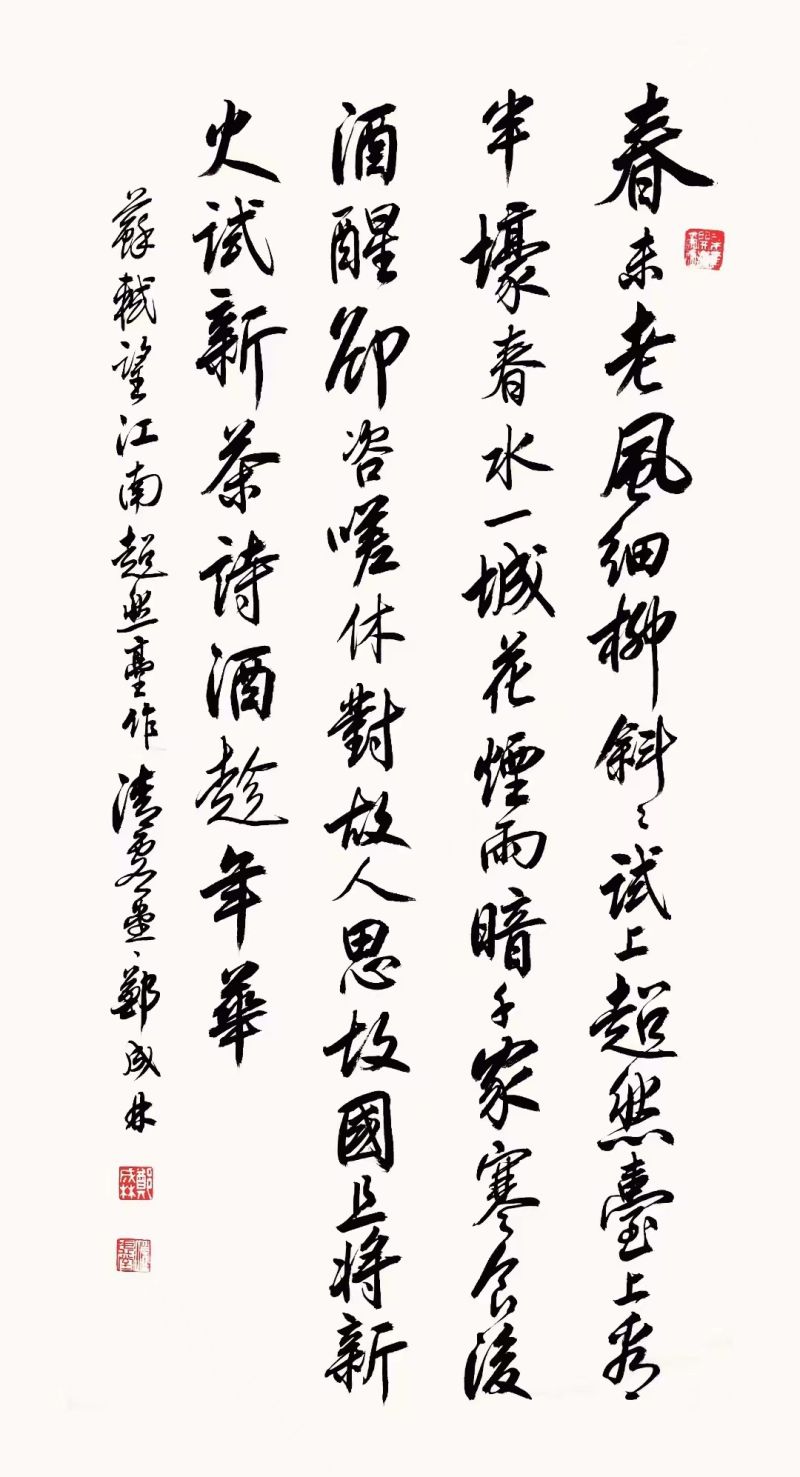 春未老風細柳斜〻試上超然臺上看
半壕春水一城花煙雨暗千家寒食後
酒醒却咨嗟休對故人思故國且將新
火試新茶詩酒趁年華
蘇軾望江南超然臺作清虛堂鄭成林
鄭成林